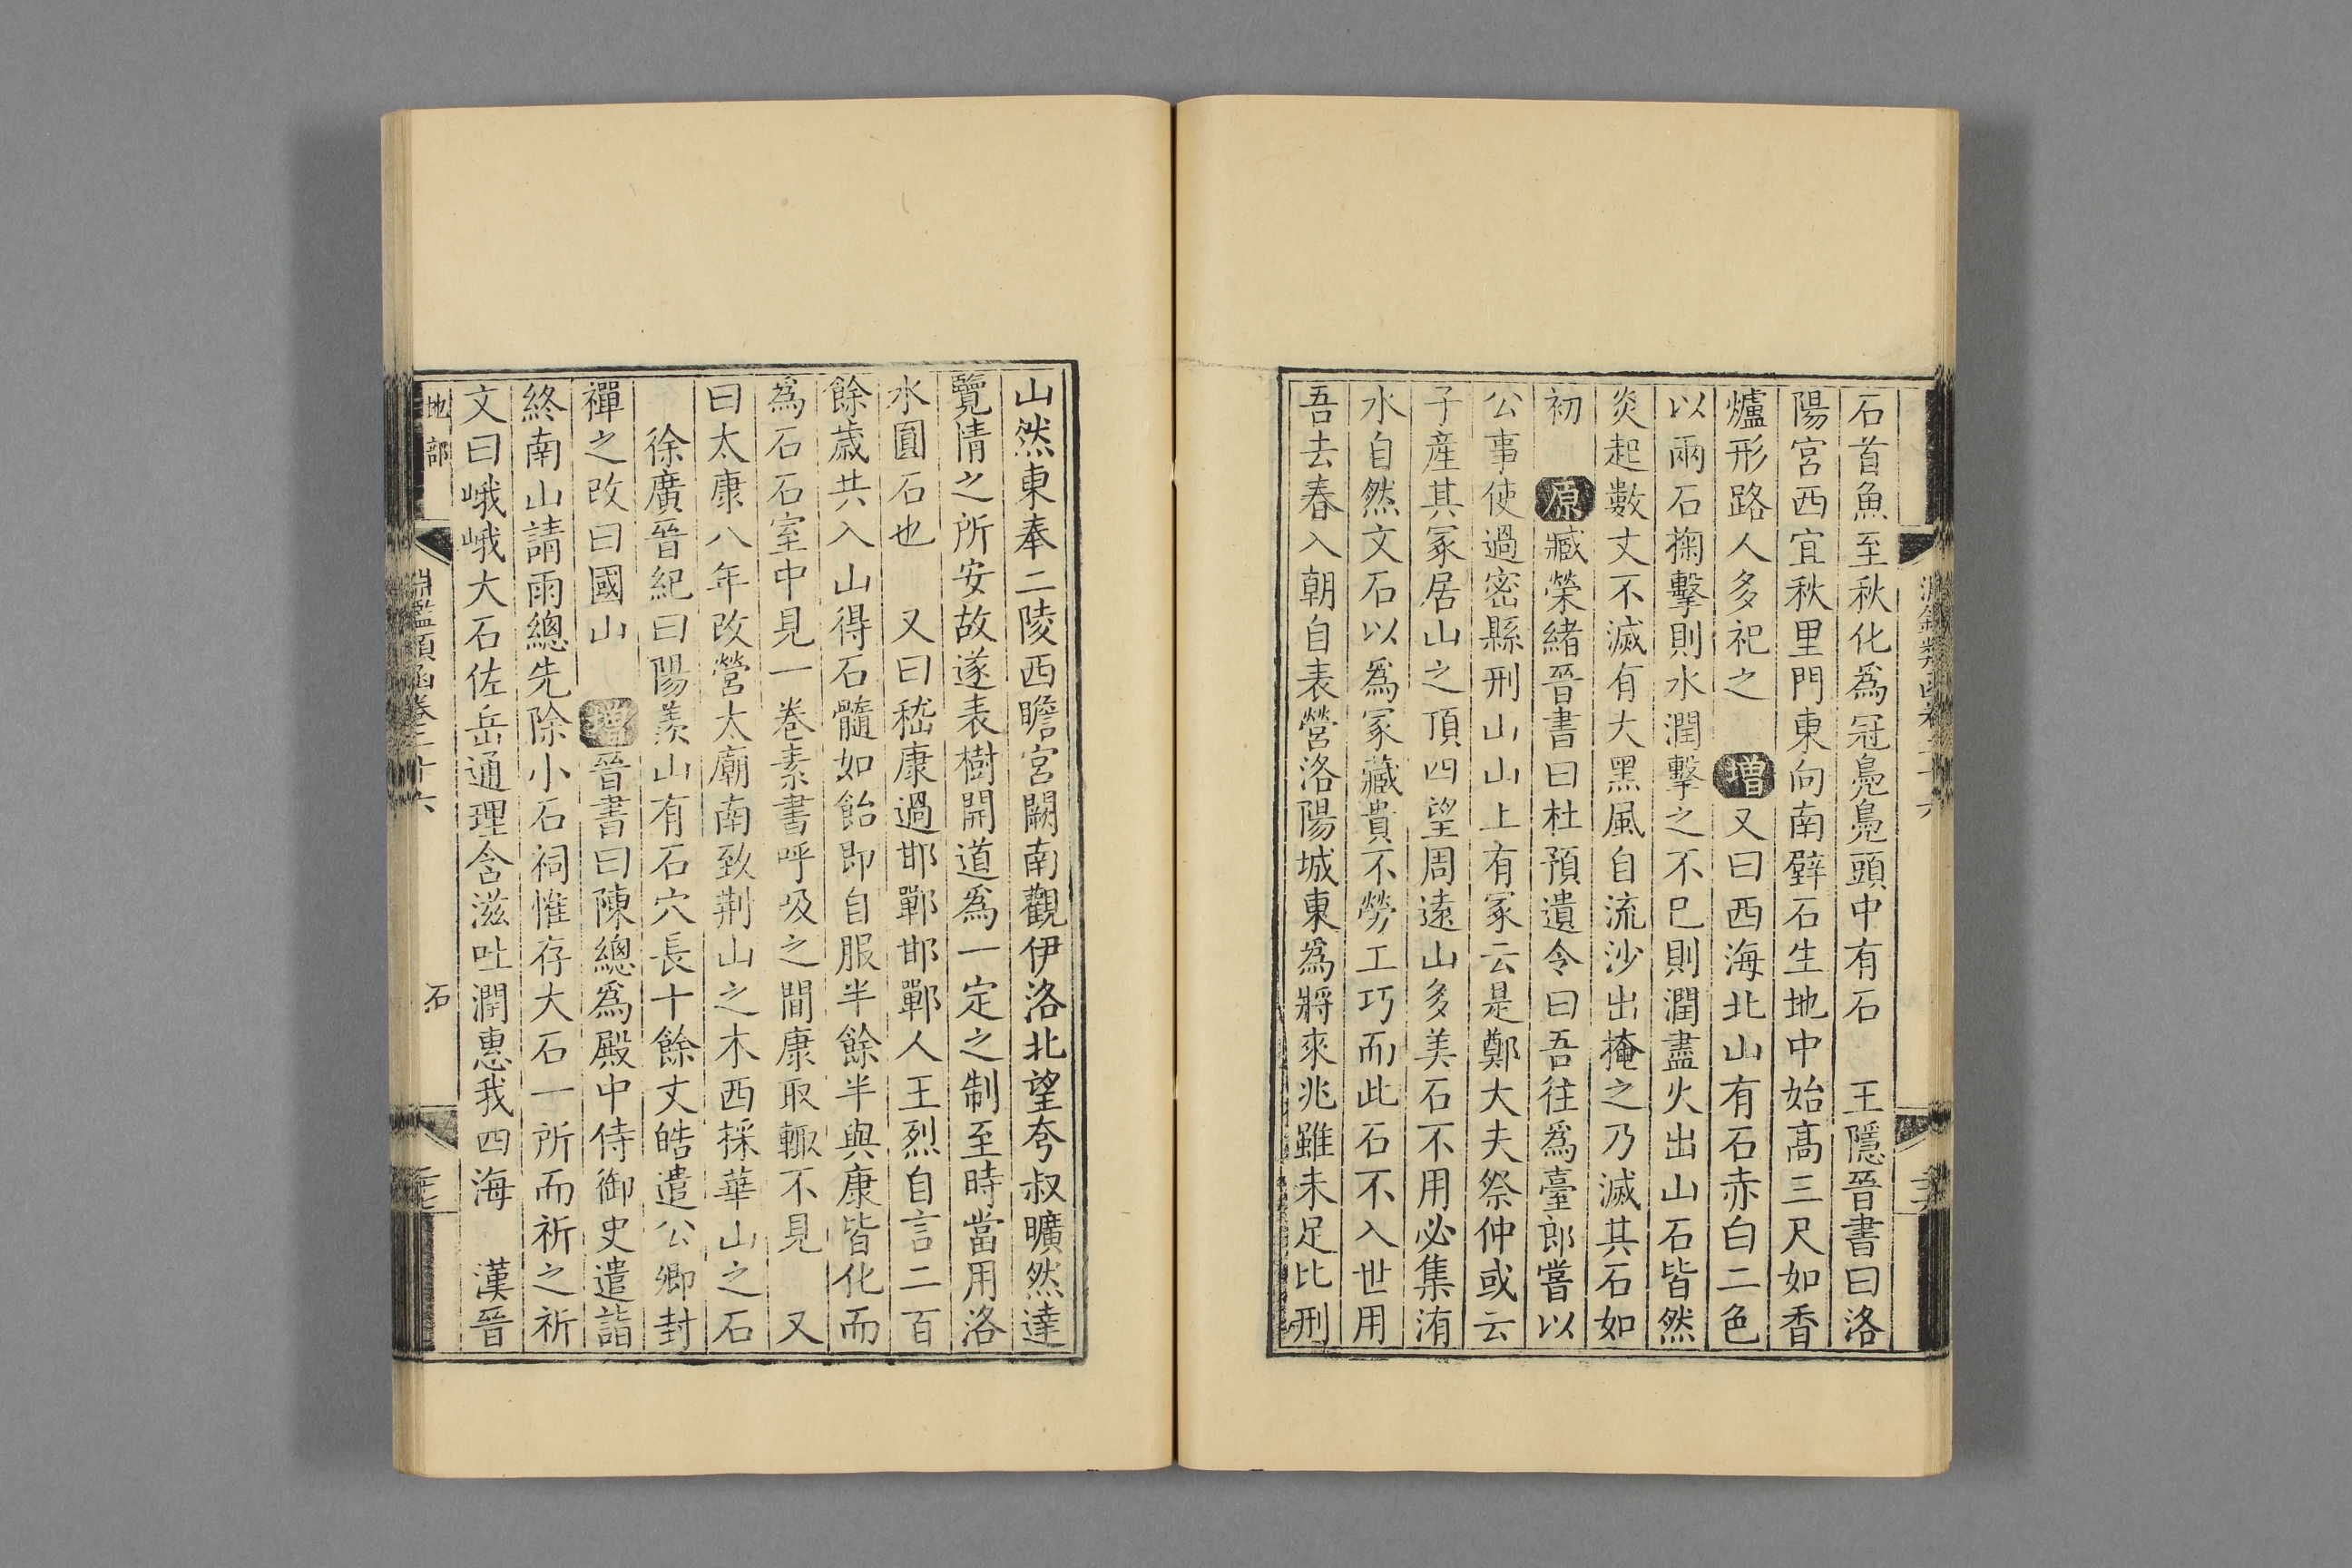 石首魚至秋化爲冠鳧鳧頭中有石　王隱晉書曰洛
陽宮西宜秋里門東向南壁石生地中始高三尺如香
爐形路人多祀之　增又曰西海北山有石赤白二色
以兩石掬擊則水潤擊之不已則潤盡火出山石皆然
炎起數丈不滅有大黑風自流沙出掩之乃滅其石如
初　原臧榮緒晉書曰杜預遺令曰吾往爲臺郎嘗以
公事使過密縣刑山山上有冢云是鄭大夫祭仲或云
子產其冢居山之頂四望周遠山多美石不用必集洧
水自然文石以爲冢藏貴不勞工巧而此石不入世用
吾去春入朝自表營洛陽城東爲將來兆雖未足比刑
山然東奉二陵西瞻宮闕南觀伊洛北望夸叔曠然達
覽情之所安故遂表樹開道爲一定之制至時當用洛
水圓石也　又曰嵇康過邯鄲邯鄲人王烈自言二百
餘歲共入山得石髓如飴即自服半餘半與康皆化而
爲石石室中見一卷素書呼吸之間康取輙不見　又
曰太康八年改營太廟南致荆山之木西採華山之石
徐廣晉紀曰陽羨山有石穴長十餘丈皓遣公卿封
禪之改曰國山　增晉書曰陳總爲殿中侍御史遣詣
終南山請雨總先除小石祠惟存大石一所而祈之祈
文曰峨峨大石佐岳通理含滋吐潤惠我四海　漢晉
地部　淵鑑類函卷二十六　石